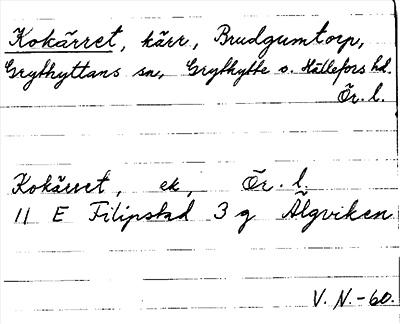 Kokärret, kärr, Brudgumtorp,
Grythyttans sn, Grythytte o. Hällefors hd.
Ör. l.
Kokärret, ek, Ör. l.
11 E Filipstad 3 g Älgviken
V. N. -60.